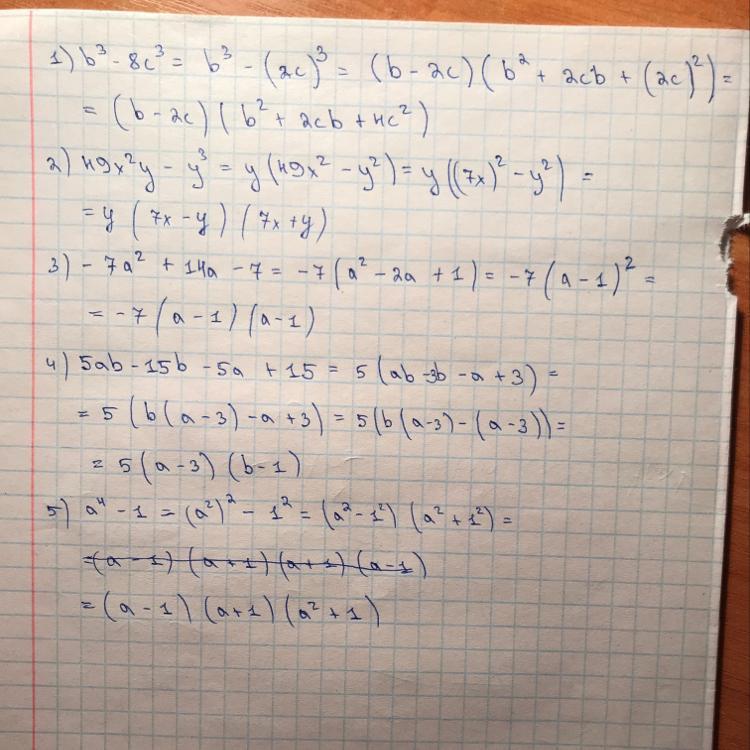 1) b³ - 8c³ = b³ - (2c)³ = (b - 2c)(b² + 2cb + (2c)²) =
= (b - 2c)(b² + 2cb + 4c²)
2) 49x²y - y³ = y(49x² - y²) = y((7x)² - y²) =
= y (7x - y) (7x + y)
3) - 7a² + 14a - 7 = -7(a² - 2a + 1) = -7(a - 1)² =
= -7(a - 1)(a - 1)
4) 5ab - 15b - 5a + 15 = 5(ab - 3b - a + 3) =
= 5(b(a - 3) - a + 3) = 5(b(a - 3) - (a - 3)) =
= 5(a - 3)(b - 1)
5) a⁴ - 1 = (a²)² - 1² = (a² - 1²)(a² + 1²) =
= (a - 1)(a + 1)(a + 1)(a - 1)
= (a - 1)(a + 1)(a² + 1)